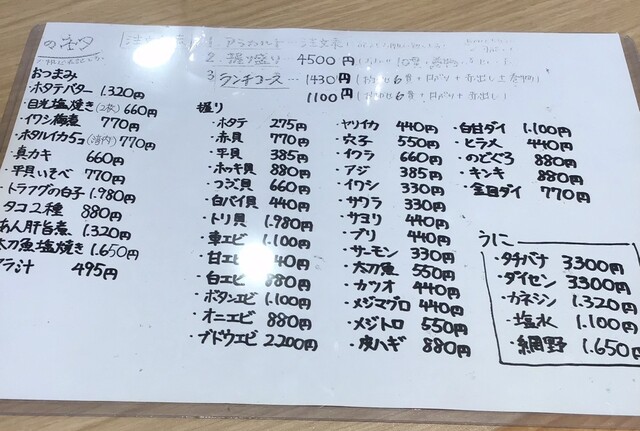 おつまみ
・ホタテバター 1.320円
・目光塩焼き(2枚) 660円
・イワシ梅煮 770円
・ホタルイカ5コ 770円
・真カキ 660円
・平貝いそべ 770円
・トラフグの白子 1.980円
・タコ2種 880円
あん肝旨煮 1.320円
太刀魚塩焼き 1.650円
アラ汁 495円
2. 握盛り 4500円
3 ランチコース… 1430円
1100円
握り
・ホタテ 275円
・赤貝 770円
・平貝 385円
・ホッキ貝 880円
・ツブ貝 660円
・白バイ貝 440円
・トリ貝 1.980円
・車エビ 1.100円
・甘エビ 440円
・白エビ 880円
・ボタンエビ 1.100円
・オニエビ 880円
・ブドウエビ 2.200円
・ヤリイカ 440円
・穴子 550円
・イクラ 660円
・アジ 385円
・イワシ 330円
・サワラ 330円
・サヨリ 440円
・ブリ 440円
・サーモン 330円
・太刀魚 550円
・カツオ 440円
・メジマグロ 440円
・メジトロ 550円
・皮ハギ 880円
・白甘ダイ 1.100円
・ヒラメ 440円
・のどぐろ 880円
・キンキ 880円
・金目ダイ 770円
うに
・タチバナ 3300円
・ダイセン 3300円
・カネシン 1.320円
・塩水 1.100円
・網野 1.650円